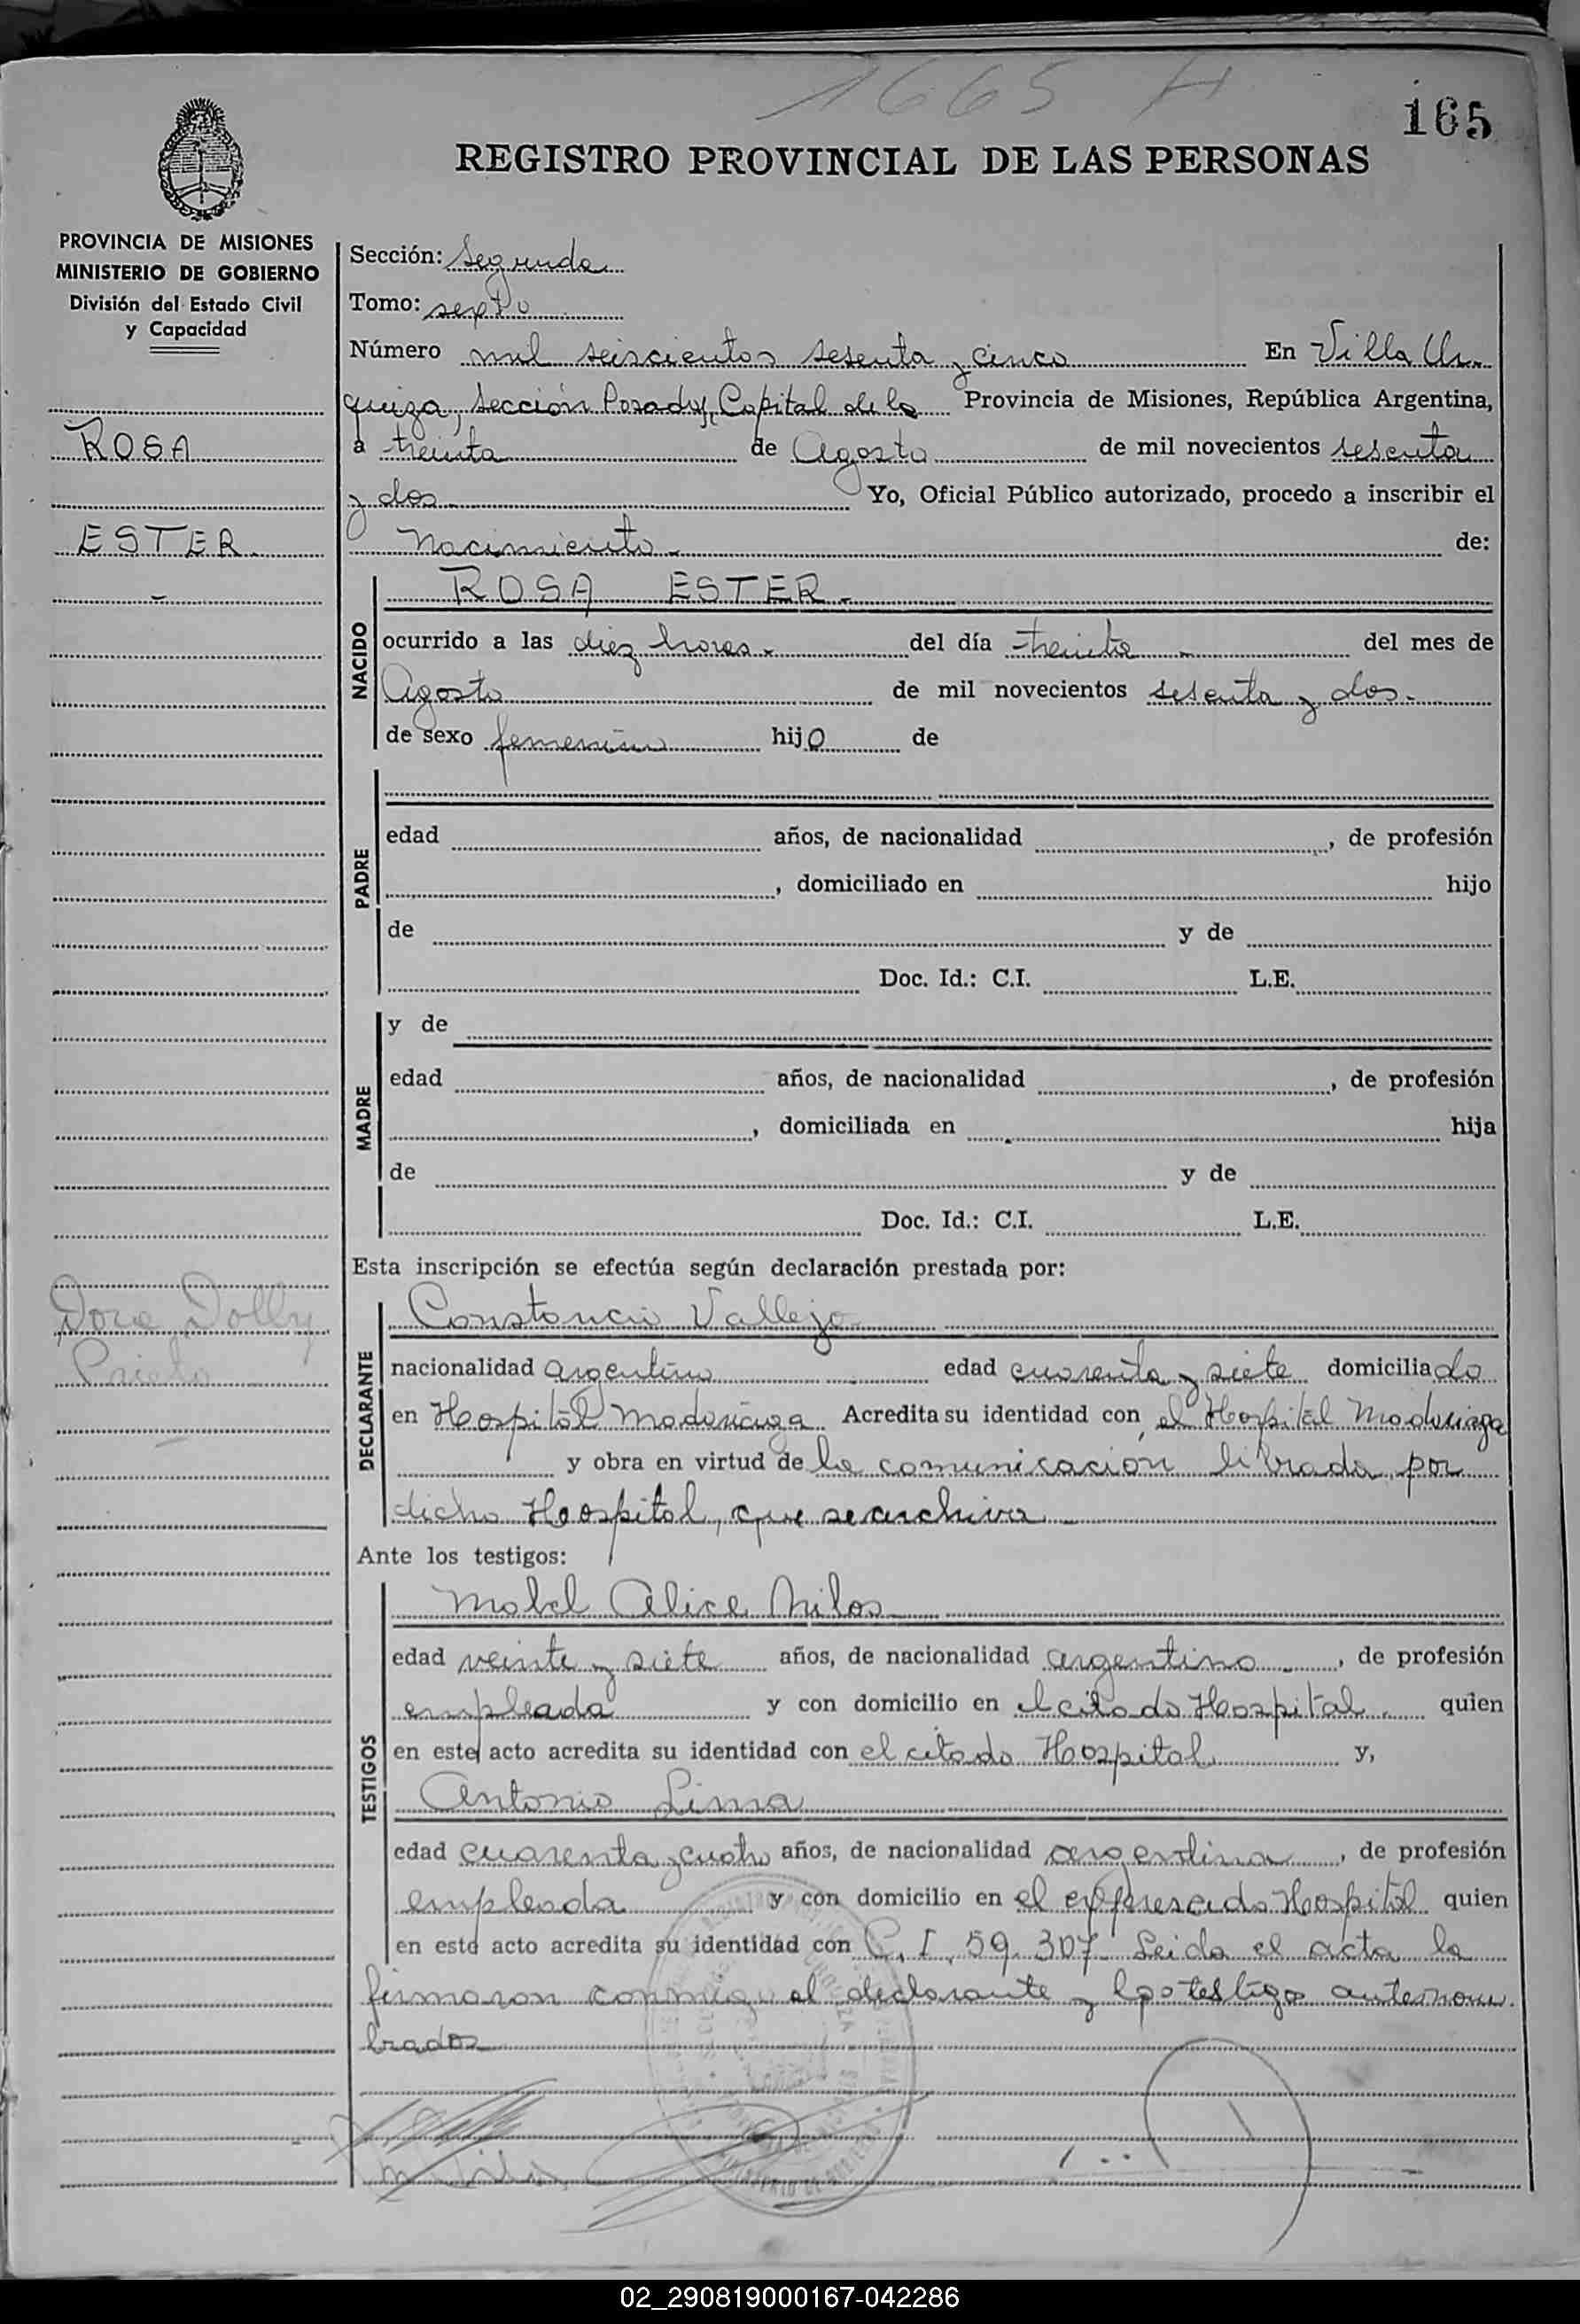 1665 H
165
REGISTRO PROVINCIAL DE LAS PERSONAS
PROVINCIA DE MISIONES
MINISTERIO DE GOBIERNO
División del Estado Civil
y Capacidad
ROSA
ESTER.
Dora Dolly
Prieto
Sección: Segunda
Tomo: sexto
Número mil seiscientos sesenta y cinco En Villa Ur-
quiza, Sección Posadas, Capital de la Provincia de Misiones, República Argentina,
a treinta de Agosto de mil novecientos sesenta
y dos Yo, Oficial Público autorizado, procedo a inscribir el
Nacimiento de:
NACIDO
ROSA ESTER
ocurrido a las diez horas. del día treinta del mes de
Agosto de mil novecientos sesenta y dos.
de sexo femenino hijo de
PADRE
edad años, de nacionalidad , de profesión
, domiciliado en hijo
de y de
Doc. Id.: C.I. L.E.
MADRE
y de
edad años, de nacionalidad , de profesión
, domiciliada en hija
de y de
Doc. Id.: C.I. L.E.
Esta inscripción se efectúa según declaración prestada por:
DECLARANTE
Constancio Vallejo
nacionalidad argentino edad cuarenta y siete domiciliado
en Hospital Madariaga Acredita su identidad con el Hospital Madariaga
y obra en virtud de la comunicación librada por
dicho Hospital, que se archiva
Ante los testigos:
TESTIGOS
Mabel Alice Milos
edad veinte y siete años, de nacionalidad argentino , de profesión
empleada y con domicilio en el citado Hospital quien
en este acto acredita su identidad con el citado Hospital y,
Antonio Lima
edad cuarenta y cuatro años, de nacionalidad argentina , de profesión
empleada y con domicilio en el expresado Hospital quien
en este acto acredita su identidad con C. I. 59.307 Leida el acta la
firmaron conmigo el declarante y los testigos anternom
brados
02_290819000167-042286